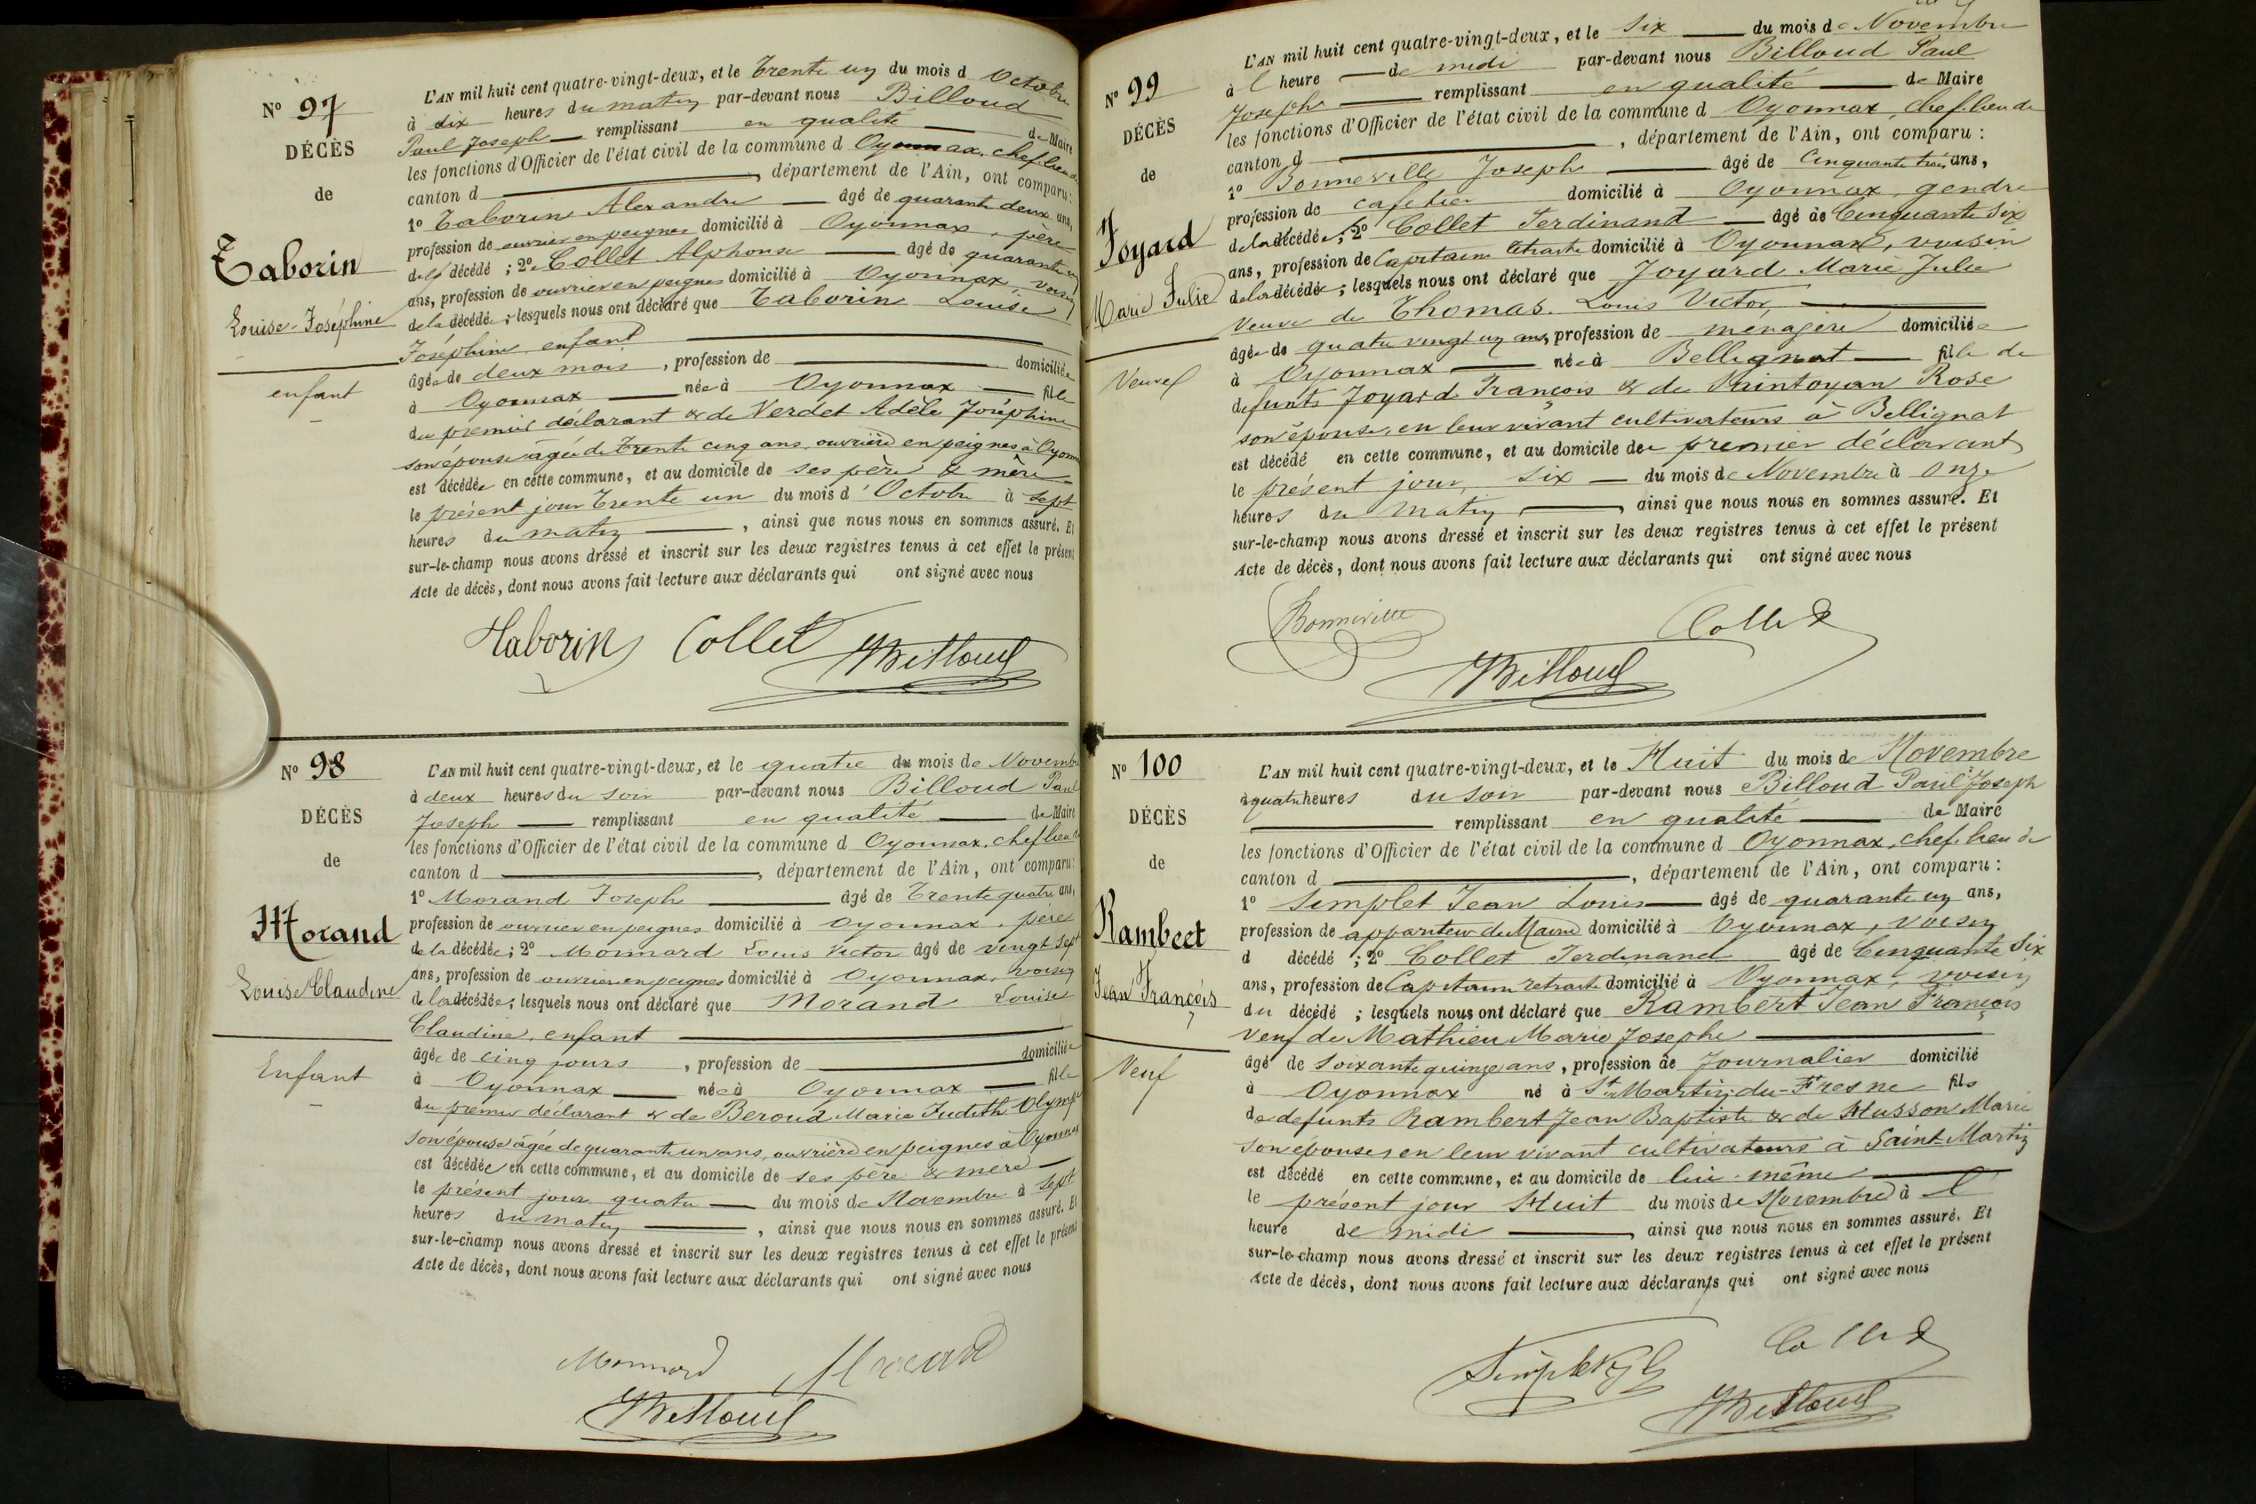 N° 97
DÉCÈS
de
Taborin
Louise-Joséphine
enfant
L'AN mil huit cent quatre-vingt-deux, et le Trente un du mois d Octobre
à dix heures du matin par-devant nous Billoud
Paul Joseph remplissant en qualité de Maire
les fonctions d'Officier de l'état civil de la commune d Oyonnax, chef lieu de
canton d , département de l'Ain, ont comparu :
1° Taborin Alexandre âgé de quarante deux ans,
profession de ouvrier en peignes domicilié à Oyonnax, père
de la décédé ; 2° Collet Alphonse âgé de quarante un
ans, profession de ouvrier en peignes domicilié à Oyonnax, voisin
de la décédée ; lesquels nous ont déclaré que Taborin Louise
Joséphine enfant
âgée de deux mois , profession de domiciliée
à Oyonnax née à Oyonnax fille
du premier déclarant & de Verdet Adèle Joséphine
son épouse âgée de Trente cinq ans, ouvrière en peignes à Oyonnax
est décédée en cette commune, et au domicile de ses père & mère
le présent jour Trente un du mois d'Octobre à sept
heures du matin , ainsi que nous nous en sommes assuré. Et
sur-le-champ nous avons dressé et inscrit sur les deux registres tenus à cet effet le présent
Acte de décès, dont nous avons fait lecture aux déclarants qui ont signé avec nous
Taborin Collet
Billoud
N° 98
DÉCÈS
de
Morand
Louise Claudine
Enfant
L'AN mil huit cent quatre-vingt-deux, et le quatre du mois de Novembre
à deux heures du soir par-devant nous Billoud Paul
Joseph remplissant en qualité de Maire
les fonctions d'Officier de l'état civil de la commune d Oyonnax, chef lieu de
canton d , département de l'Ain, ont comparu :
1° Morand Joseph âgé de Trente quatre ans,
profession de ouvrier en peignes domicilié à Oyonnax, père
de la décédée ; 2° Monnard Louis Victor âgé de vingt sept
ans, profession de ouvrier en peignes domicilié à Oyonnax, voisin
de la décédée ; lesquels nous ont déclaré que Morand Louise
Claudine, enfant
âgée de cinq jours , profession de domiciliée
à Oyonnax née à Oyonnax fille
du premier déclarant & de Beroud Marie Judith Olympe
son épouse âgée de quarante un ans, ouvrière en peignes à Oyonnax
est décédée en cette commune, et au domicile de ses père & mère
le présent jour quatre du mois de Novembre à sept
heures du matin , ainsi que nous nous en sommes assuré. Et
sur-le-champ nous avons dressé et inscrit sur les deux registres tenus à cet effet le présent
Acte de décès, dont nous avons fait lecture aux déclarants qui ont signé avec nous
Monnard Morand
Billoud
N° 99
DÉCÈS
de
Joyard
Marie Julie
Veuve
L'AN mil huit cent quatre-vingt-deux, et le Six du mois de Novembre
à l heure de midi par-devant nous Billoud Paul
Joseph remplissant en qualité de Maire
les fonctions d'Officier de l'état civil de la commune d Oyonnax, chef lieu de
canton d , département de l'Ain, ont comparu :
1° Bonneville Joseph âgé de Cinquante trois ans,
profession de cafetier domicilié à Oyonnax, gendre
de la décédée ; 2° Collet Ferdinand âgé de Cinquante Six
ans, profession de Capitaine retraité domicilié à Oyonnax, voisin
de la décédée ; lesquels nous ont déclaré que Joyard Marie Julie
veuve de Thomas Louis Victor,
âgée de quatre vingt un ans, profession de ménagère domiciliée
à Oyonnax née à Bellignat fille de
défunts Joyard François & de Vaintoyan Rose
son épouse, en leur vivant cultivateurs à Bellignat
est décédé en cette commune, et au domicile de premier déclarant
le présent jour, six du mois de Novembre à onze
heures du matin , ainsi que nous nous en sommes assuré. Et
sur-le-champ nous avons dressé et inscrit sur les deux registres tenus à cet effet le présent
Acte de décès, dont nous avons fait lecture aux déclarants qui ont signé avec nous
Bonneville Collet
Billoud
N° 100
DÉCÈS
de
Rambert
Jean François
Veuf
L'AN mil huit cent quatre-vingt-deux, et le Huit du mois de Novembre
à quatre heures du soir par-devant nous Billoud Paul Joseph
remplissant en qualité de Maire
les fonctions d'Officier de l'état civil de la commune d Oyonnax, chef lieu de
canton d , département de l'Ain, ont comparu :
1° Simplet Jean Louis âgé de quarante un ans,
profession de appariteur de Mairie domicilié à Oyonnax, voisin
d décédé ; 2° Collet Ferdinand âgé de Cinquante Six
ans, profession de Capitaine retraité domicilié à Oyonnax, voisin
du décédé ; lesquels nous ont déclaré que Rambert Jean François
veuf de Mathieu Marie Josephe
âgé de Soixante quinze ans, profession de Journalier domicilié
à Oyonnax né à St Martin-du-Fresne fils
de défunts Rambert Jean Baptiste & de Husson Marie
son épouse, en leur vivant cultivateurs à Saint-Martin
est décédé en cette commune, et au domicile de lui-même
le présent jour Huit du mois de Novembre à l
heure de midi , ainsi que nous nous en sommes assuré. Et
sur-le-champ nous avons dressé et inscrit sur les deux registres tenus à cet effet le présent
Acte de décès, dont nous avons fait lecture aux déclarants qui ont signé avec nous
Simplet Collet
Billoud